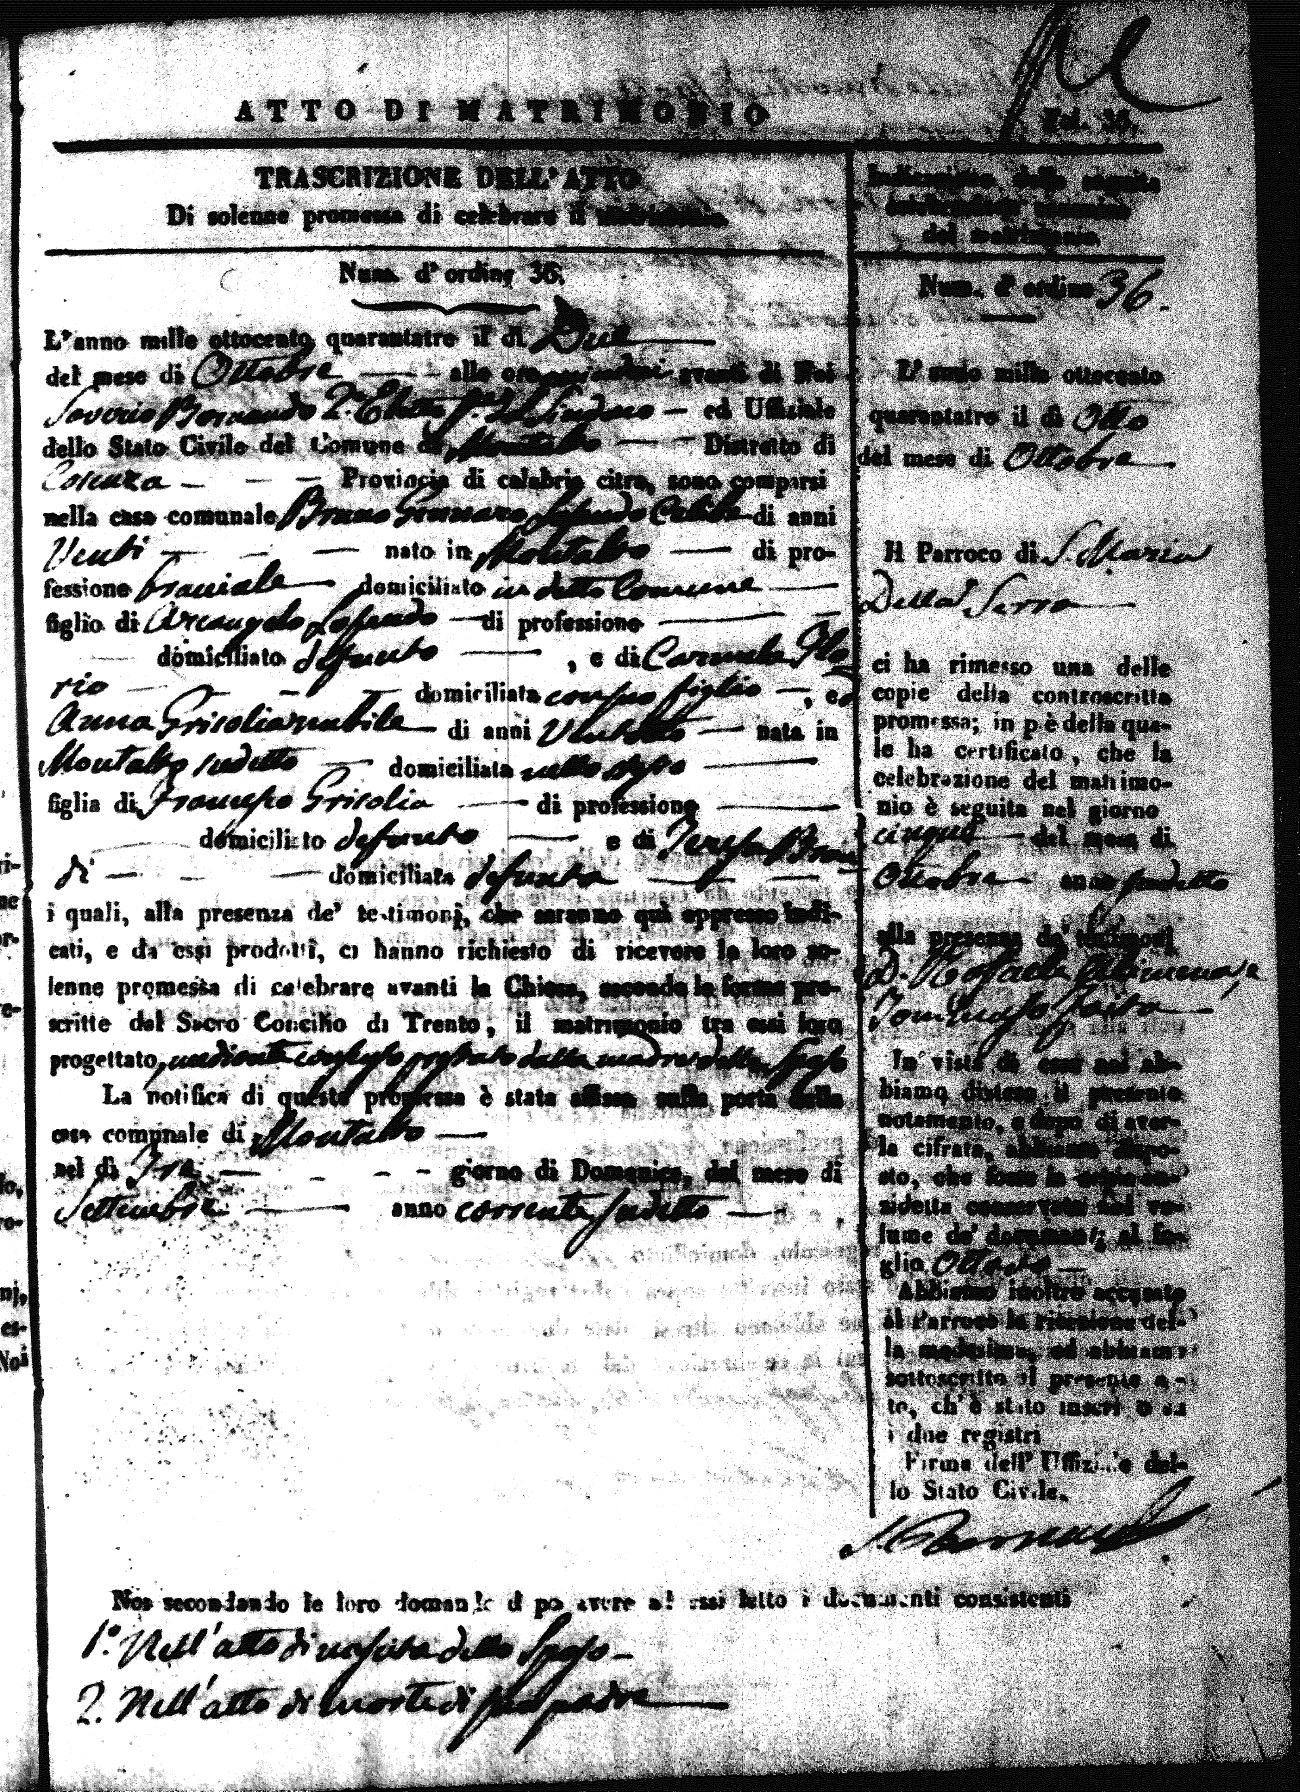 ATTO DI MATRIMONIO
Fol. 36.
TRASCRIZIONE DELL' ATTO
Di solenne promessa di celebrare il matrimonio
Num. d' ordine 36.
L'anno mille ottocento quarantatre il dì Due
del mese di Ottobre alle ore avanti di Noi
Saverio Bernaudo 2º Eletto pel Sindaco ed Uffiziale
dello Stato Civile del Comune di Montalto Distretto di
Cosenza Provincia di calabria citra, sono comparsi
nella casa comunale Bruno Gennaro Celibe di anni
Venti nato in Montalto di pro-
fessione braciale domiciliato in detto Comune
figlio di Arcangelo di professione
domiciliato defunto , e di Carmela Flo
rio domiciliata con suo figlio , ed
Anna Grisolia nubile di anni Ventotto nata in
Montalto sudetto domiciliata nello stesso
figlia di Francesco Grisolia di professione
domiciliato defunto e di Teresa
di domiciliata defunta
i quali, alla presenza de' testimonj, che saranno qui appresso indi-
cati, e da essi prodotti, ci hanno richiesto di ricevere la loro so-
lenne promessa di celebrare avanti la Chiesa, secondo le forme pre-
scritte dal Sacro Concilio di Trento, il matrimonio tra essi loro
progettato, mediante consenso prestato dalla madre dello Sposo
La notifica di questa promessa è stata affissa sulla porta della
casa comunale di Montalto
nel dì Tre giorno di Domenica, del mese di
Settembre anno corrente sudetto
Indicazione della seguita
celebrazione canonica
del matrimonio
Num. d' ordine 36.
L' anno mille ottocento
quarantatre il dì Otto
del mese di Ottobre
Il Parroco di S. Maria
Della Serra
ci ha rimesso una delle
copie della controscritta
promessa; in piè della qua-
le ha certificato, che la
celebrazione del matrimo-
nio è seguita nel giorno
cinque del mese di
Ottobre anno sudetto
alla presenza de' testimonj
D. Raffaele
Tommaso
In vista di essa noi ab-
biamo disteso il presente
notamento, e dopo di aver-
la cifrata, abbiamo dispo-
sto, che fosse la copia an-
zidetta conservata nel vo-
lume de' documenti; al fo-
glio
Abbiamo inoltre accusato
al Parroco la ricezione del-
la medesima, ed abbiamo
sottoscritto il presente at-
to, ch' è stato inserito su
i due registri
Firma dell' Uffiziale del-
lo Stato Civile.
S. Bernaudo
Noi secondando le loro domande dopo avere ad essi letto i documenti consistenti
1º. Nell' atto di nascita dello Sposo
2. Nell' atto di morte di suo padre